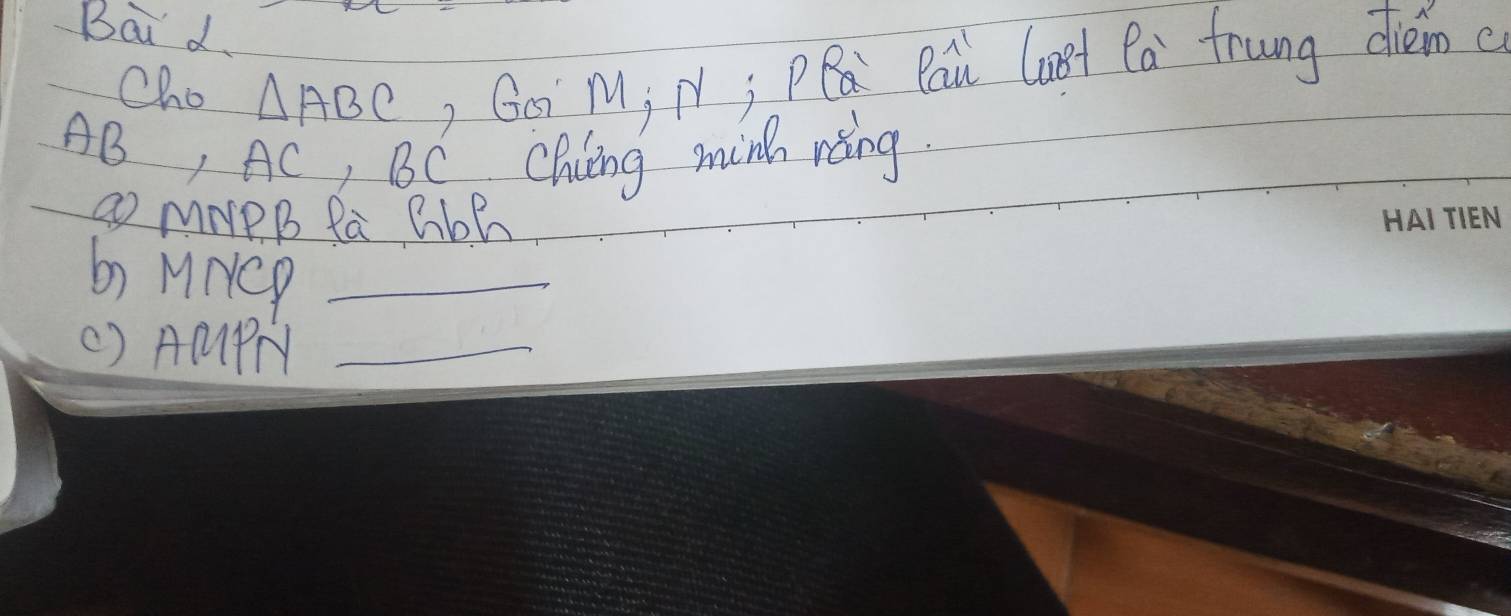 Bài 2.
Cho ΔABC, Gọi M; N; P là lần lượt là trung điểm
AB, AC, BC. Chứng minh rằng.
a) MNPB là hbh
HAI TIEN
b) MNCP ______
c) AMPN ______